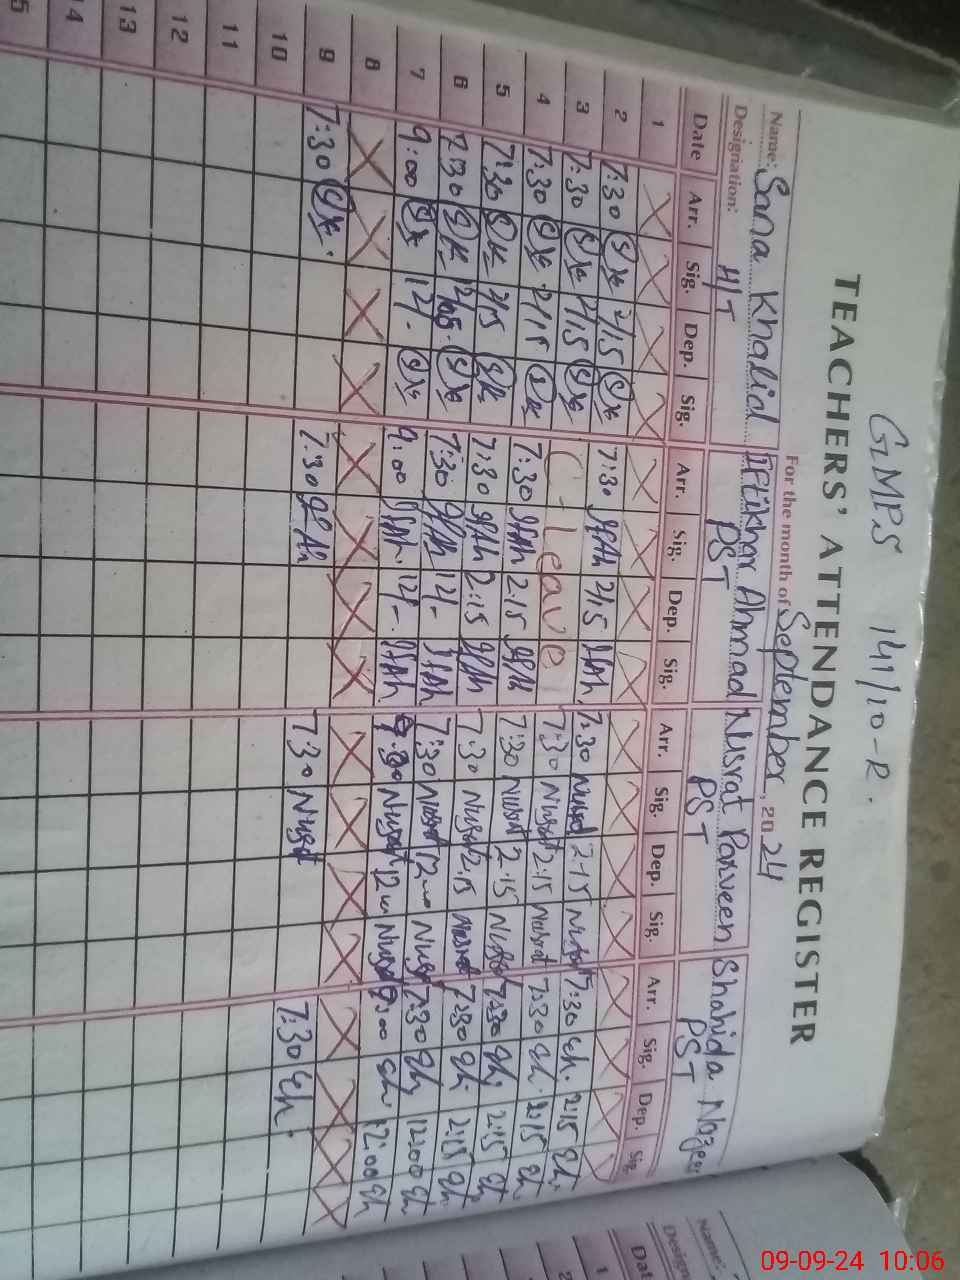 GMPS 141/10-R.
TEACHERS' ATTENDANCE REGISTER
For the month of September, 2024
Name: Sana Khalid Iftikhar Ahmad Nusrat Parveen Shahida
Designation: H/T PST PST PST
Date Arr. Sig. Dep. Sig. Arr. Sig. Dep. Sig. Arr. Sig. Dep. Sig. Arr. Sig. Dep. Sig.
1
2 7:30 2/15 7:30 2/15 7:30 Nusrat 2-15 Nusrat 7:30 2:15
3 7:30 2/15 C-Leave 7:30 Nusrat 2:15 Nusrat 7:30 2:15
4 7:30 2/15 7:30 2:15 7:30 Nusrat 2:15 Nusrat 7:30 2:15
5 7:30 2/15 7:30 2:15 7:30 Nusrat 2:15 Nusrat 7:30 2:15
6 7:30 7:30 12/- 7:30 Nusrat 12 Nusrat 7:30 12:00
7 9:00 12/- 9:00 12/- Nusrat 12 Nusrat 9:00 12:00
8
9 7:30 7:30 7:30 Nusrat 7:30
10
11
12
13
14
15
Name:
Date
1
2
09-09-24 10:06